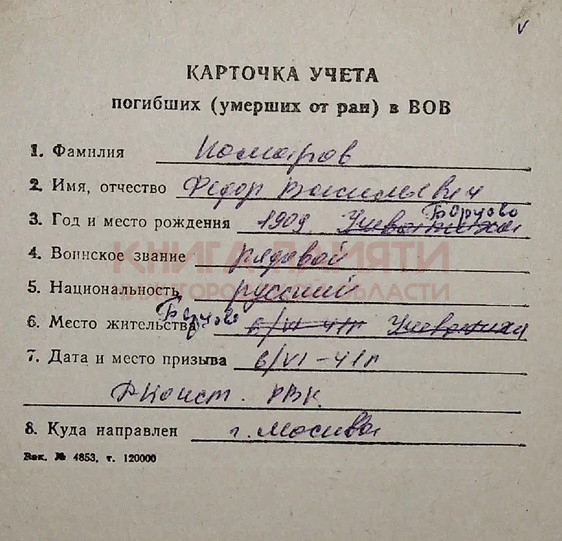 v
КАРТОЧКА УЧЕТА
погибших (умерших от ран) в ВОВ
1. Фамилия Комаров
2. Имя, отчество Фёдор Васильевич
Борцово
3. Год и место рождения 1909
4. Воинское звание рядовой
КНИГА ПАМЯТИ
НИЖЕГОРОДСКОЙ ОБЛАСТИ
5. Национальность русский
Борцово
6. Место жительства 6/VI-41г
7. Дата и место призыва 6/VI-41г
РВК.
8. Куда направлен г. Москва
Зак. № 4853, т. 120000